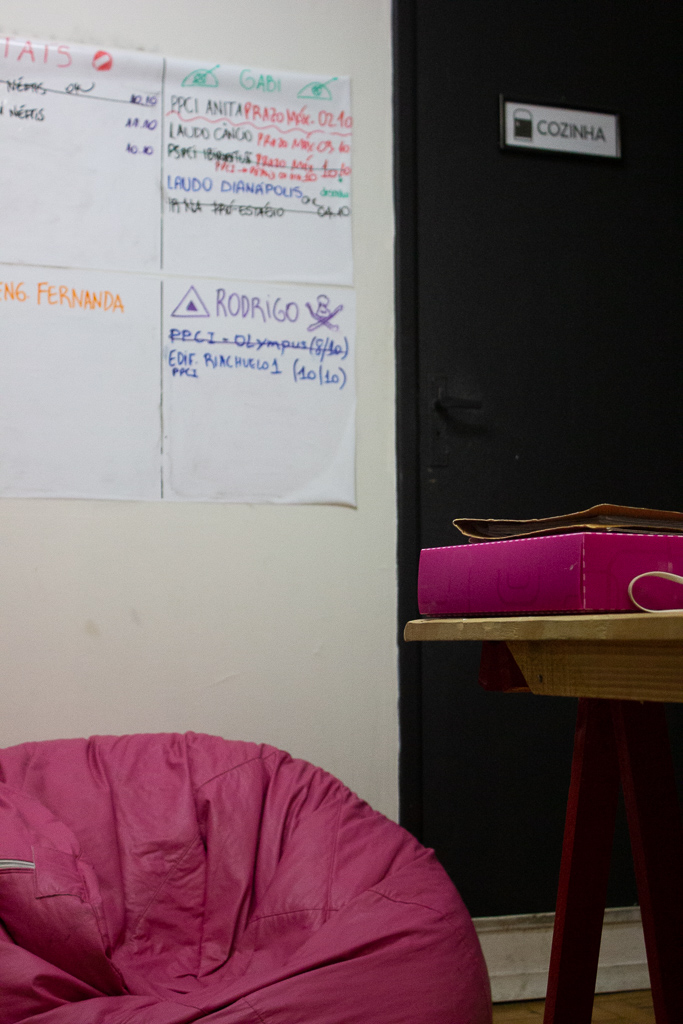 TAIS
NÉFTIS OK 10.10
NÉFTIS 11.10
10.10
GABI
PPCI ANITA PRAZO MÁX. 02.10
LAUDO CÂNCIO PRAZO MÁX 09.10
PSPCI PRAZO MÁX 10.10
PPCI
LAUDO DIANÁPOLIS
OK
ENG. FERNANDA
RODRIGO
PPCI - OLYMPUS (8/10)
EDIF. RIACHUELO 1 (10/10)
PPCI
COZINHA